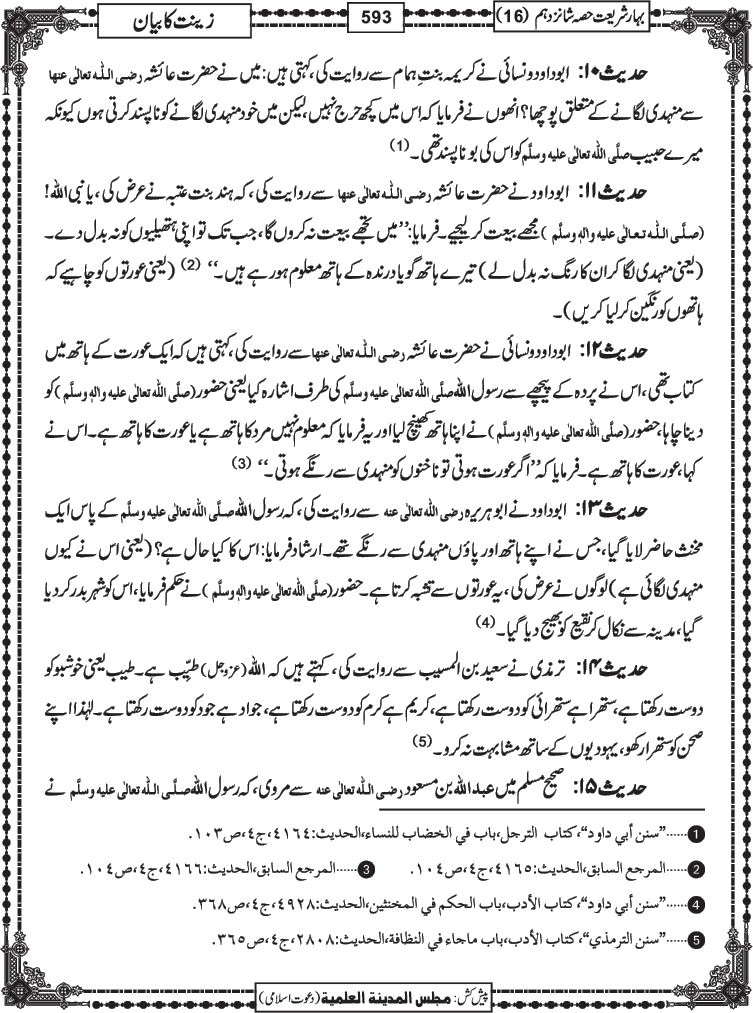 بہارِ شریعت حصہ شانزدہم (16)
593
زینت کا بیان
حدیث ۱۰: ابو داود و نسائی نے کریمہ بنتِ ہمام سے روایت کی، کہتی ہیں: میں نے حضرت عائشہ رضی اللہ تعالٰی عنہا
سے منہدی لگانے کے متعلق پوچھا؟ انھوں نے فرمایا کہ اس میں کچھ حرج نہیں، لیکن میں خود منہدی لگانے کو ناپسند کرتی ہوں کیونکہ
میرے حبیب صلَّی اللہ تعالٰی علیہ وسلَّم کو اس کی بو ناپسند تھی۔ (1)
حدیث ۱۱: ابو داود نے حضرت عائشہ رضی اللہ تعالٰی عنہا سے روایت کی، کہ ہند بنت عتبہ نے عرض کی، یا نبی اللہ!
(صلَّی اللہ تعالٰی علیہ والہٖ وسلَّم) مجھے بیعت کر لیجیے۔ فرمایا: ’’میں تجھے بیعت نہ کروں گا، جب تک تو اپنی ہتھیلیوں کو نہ بدل دے۔
(یعنی منہدی لگا کر ان کا رنگ نہ بدل لے) تیرے ہاتھ گویا درندہ کے ہاتھ معلوم ہو رہے ہیں۔‘‘ (2) (یعنی عورتوں کو چاہیے کہ
ہاتھوں کو رنگین کر لیا کریں)۔
حدیث ۱۲: ابو داود و نسائی نے حضرت عائشہ رضی اللہ تعالٰی عنہا سے روایت کی، کہتی ہیں کہ ایک عورت کے ہاتھ میں
کتاب تھی، اس نے پردہ کے پیچھے سے رسول اللہ صلَّی اللہ تعالٰی علیہ وسلَّم کی طرف اشارہ کیا یعنی حضور (صلَّی اللہ تعالٰی علیہ والہٖ وسلَّم) کو
دینا چاہا، حضور (صلَّی اللہ تعالٰی علیہ والہٖ وسلَّم) نے اپنا ہاتھ کھینچ لیا اور یہ فرمایا کہ معلوم نہیں مرد کا ہاتھ ہے یا عورت کا ہاتھ ہے۔ اس نے
کہا، عورت کا ہاتھ ہے۔ فرمایا کہ ’’اگر عورت ہوتی تو ناخنوں کو منہدی سے رنگے ہوتی۔‘‘ (3)
حدیث ۱۳: ابو داود نے ابوہریرہ رضی اللہ تعالٰی عنہ سے روایت کی، کہ رسول اللہ صلَّی اللہ تعالٰی علیہ وسلَّم کے پاس ایک
مخنث حاضر لایا گیا، جس نے اپنے ہاتھ اور پاؤں منہدی سے رنگے تھے۔ ارشاد فرمایا: اس کا کیا حال ہے؟ (یعنی اس نے کیوں
منہدی لگائی ہے) لوگوں نے عرض کی، یہ عورتوں سے تشبہ کرتا ہے۔ حضور (صلَّی اللہ تعالٰی علیہ والہٖ وسلَّم) نے حکم فرمایا، اس کو شہر بدر کر دیا
گیا، مدینہ سے نکال کر نقیع کو بھیج دیا گیا۔ (4)
حدیث ۱۴: ترمذی نے سعید بن المسیب سے روایت کی، کہتے ہیں کہ اللہ (عزوجل) طیِّب ہے۔ طیب یعنی خوشبو کو
دوست رکھتا ہے، ستھرا ہے ستھرائی کو دوست رکھتا ہے، کریم ہے کرم کو دوست رکھتا ہے، جواد ہے جود کو دوست رکھتا ہے۔ لہٰذا اپنے
صحن کو ستھرا رکھو، یہودیوں کے ساتھ مشابہت نہ کرو۔ (5)
حدیث ۱۵: صحیح مسلم میں عبد اللہ بن مسعود رضی اللہ تعالٰی عنہ سے مروی، کہ رسول اللہ صلَّی اللہ تعالٰی علیہ وسلَّم نے
1 ......"سنن أبي داود"، کتاب الترجل، باب في الخضاب للنساء، الحدیث: ٤١٦٤، ج٤، ص١٠٣.
2 ......المرجع السابق، الحدیث: ٤١٦٥، ج٤، ص١٠٤. 3 ......المرجع السابق، الحدیث: ٤١٦٦، ج٤، ص١٠٤.
4 ......"سنن أبي داود"، کتاب الأدب، باب الحکم في المخنثین، الحدیث: ٤٩٢٨، ج٤، ص٣٦٨.
5 ......"سنن الترمذي"، کتاب الأدب، باب ماجاء في النظافة، الحدیث: ٢٨٠٨، ج٤، ص٣٦٥.
پیش کش: مجلس المدینۃ العلمیۃ (دعوت اسلامی)